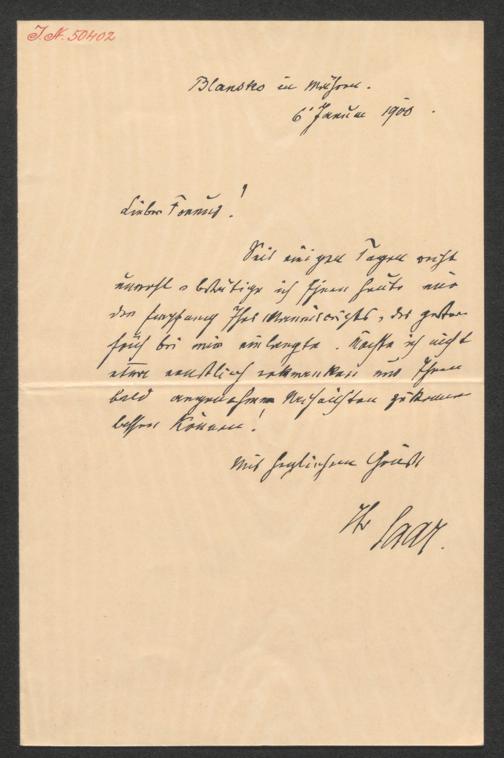 J. N. 50402
Blansko in Mähren.
6' Januar 1900.
Lieber Freund!
Seit einigen Tagen recht
unwohl, bestätige ich Ihnen heute nur
den Empfang Ihres Manuscripts, das gestern
früh bei mir einlangte. Möchte ich nicht
etwa ernstlich erkranken und Ihnen
bald angenehme Nachrichten zukommen
lassen können!
Mit herzlichem Gruß
Ihr
Saar.